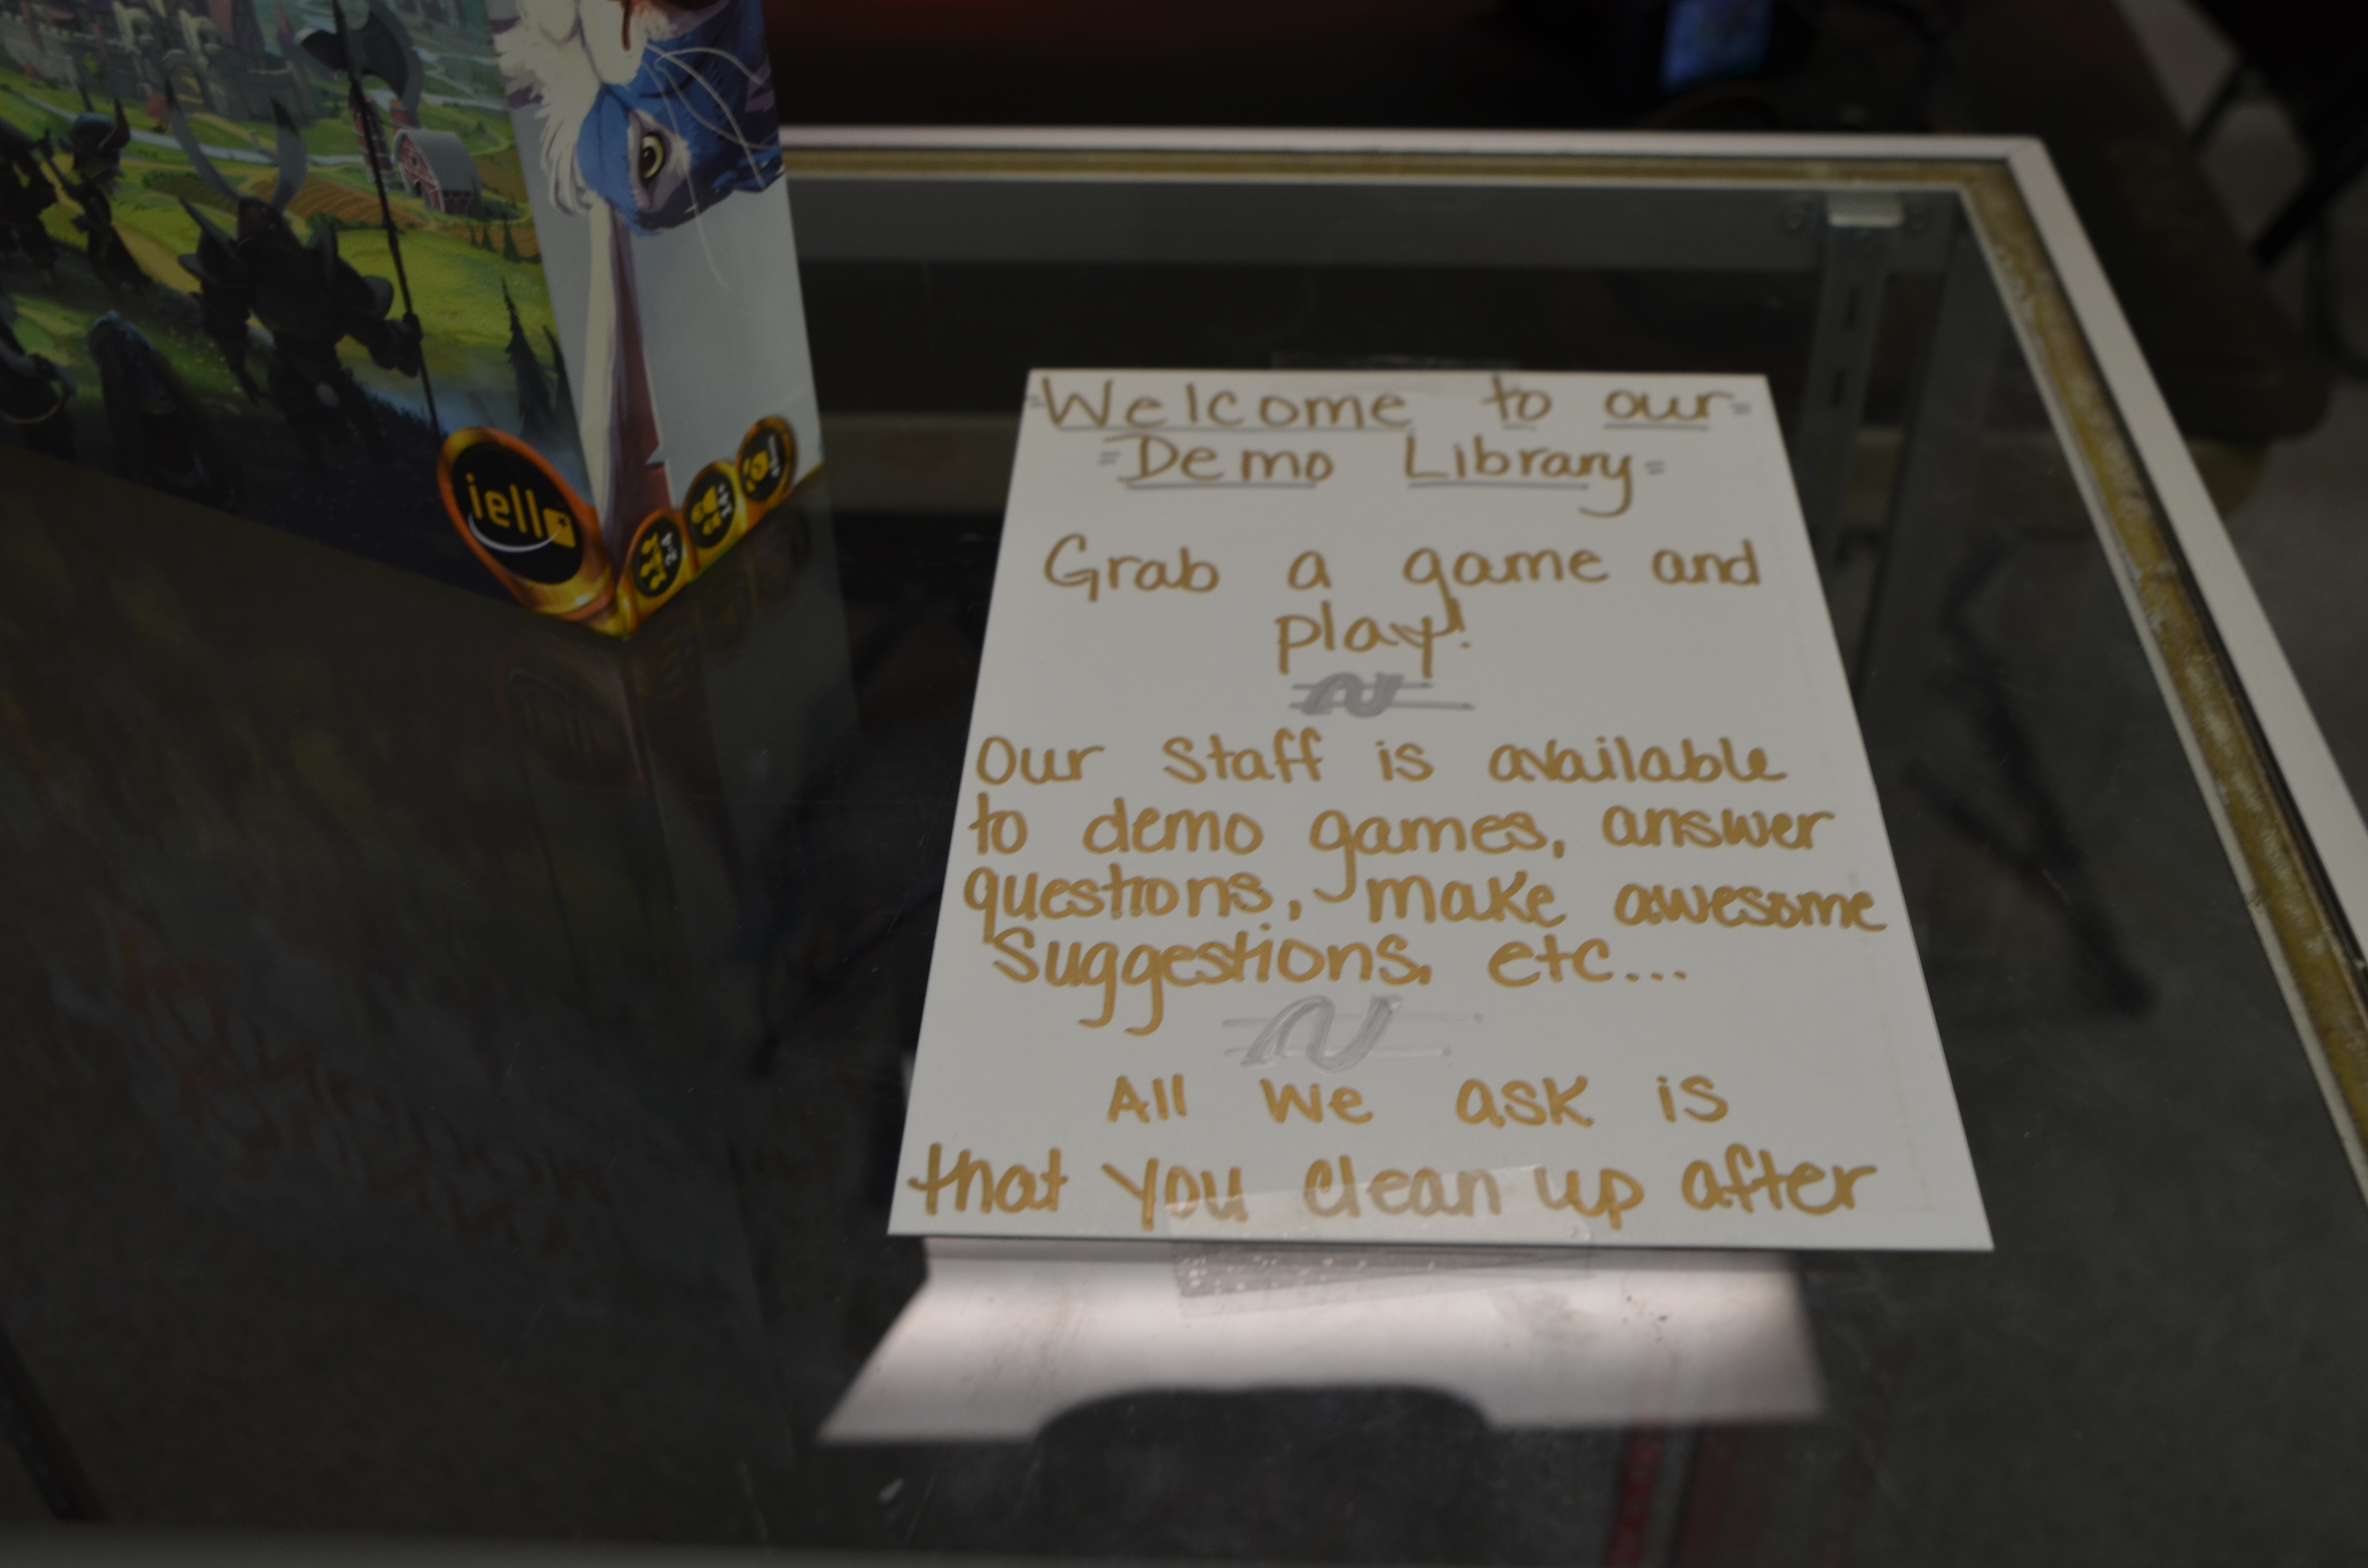 iello
2-4
14+
Welcome to our
Demo Library
Grab a game and
play!
Our Staff is available
to demo games, answer
questions, make awesome
Suggestions, etc...
All we ask is
that you clean up after